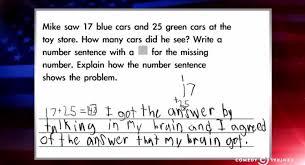 Mike saw 17 blue cars and 25 green cars at the
toy store. How many cars did he see? Write a
number sentence with a for the missing
number. Explain how the number sentence
shows the problem.
17
+25
17+25=42 I got the answer by
talking in my brain and I agreed
of the answer that my brain got.
COMEDY CENTRAL